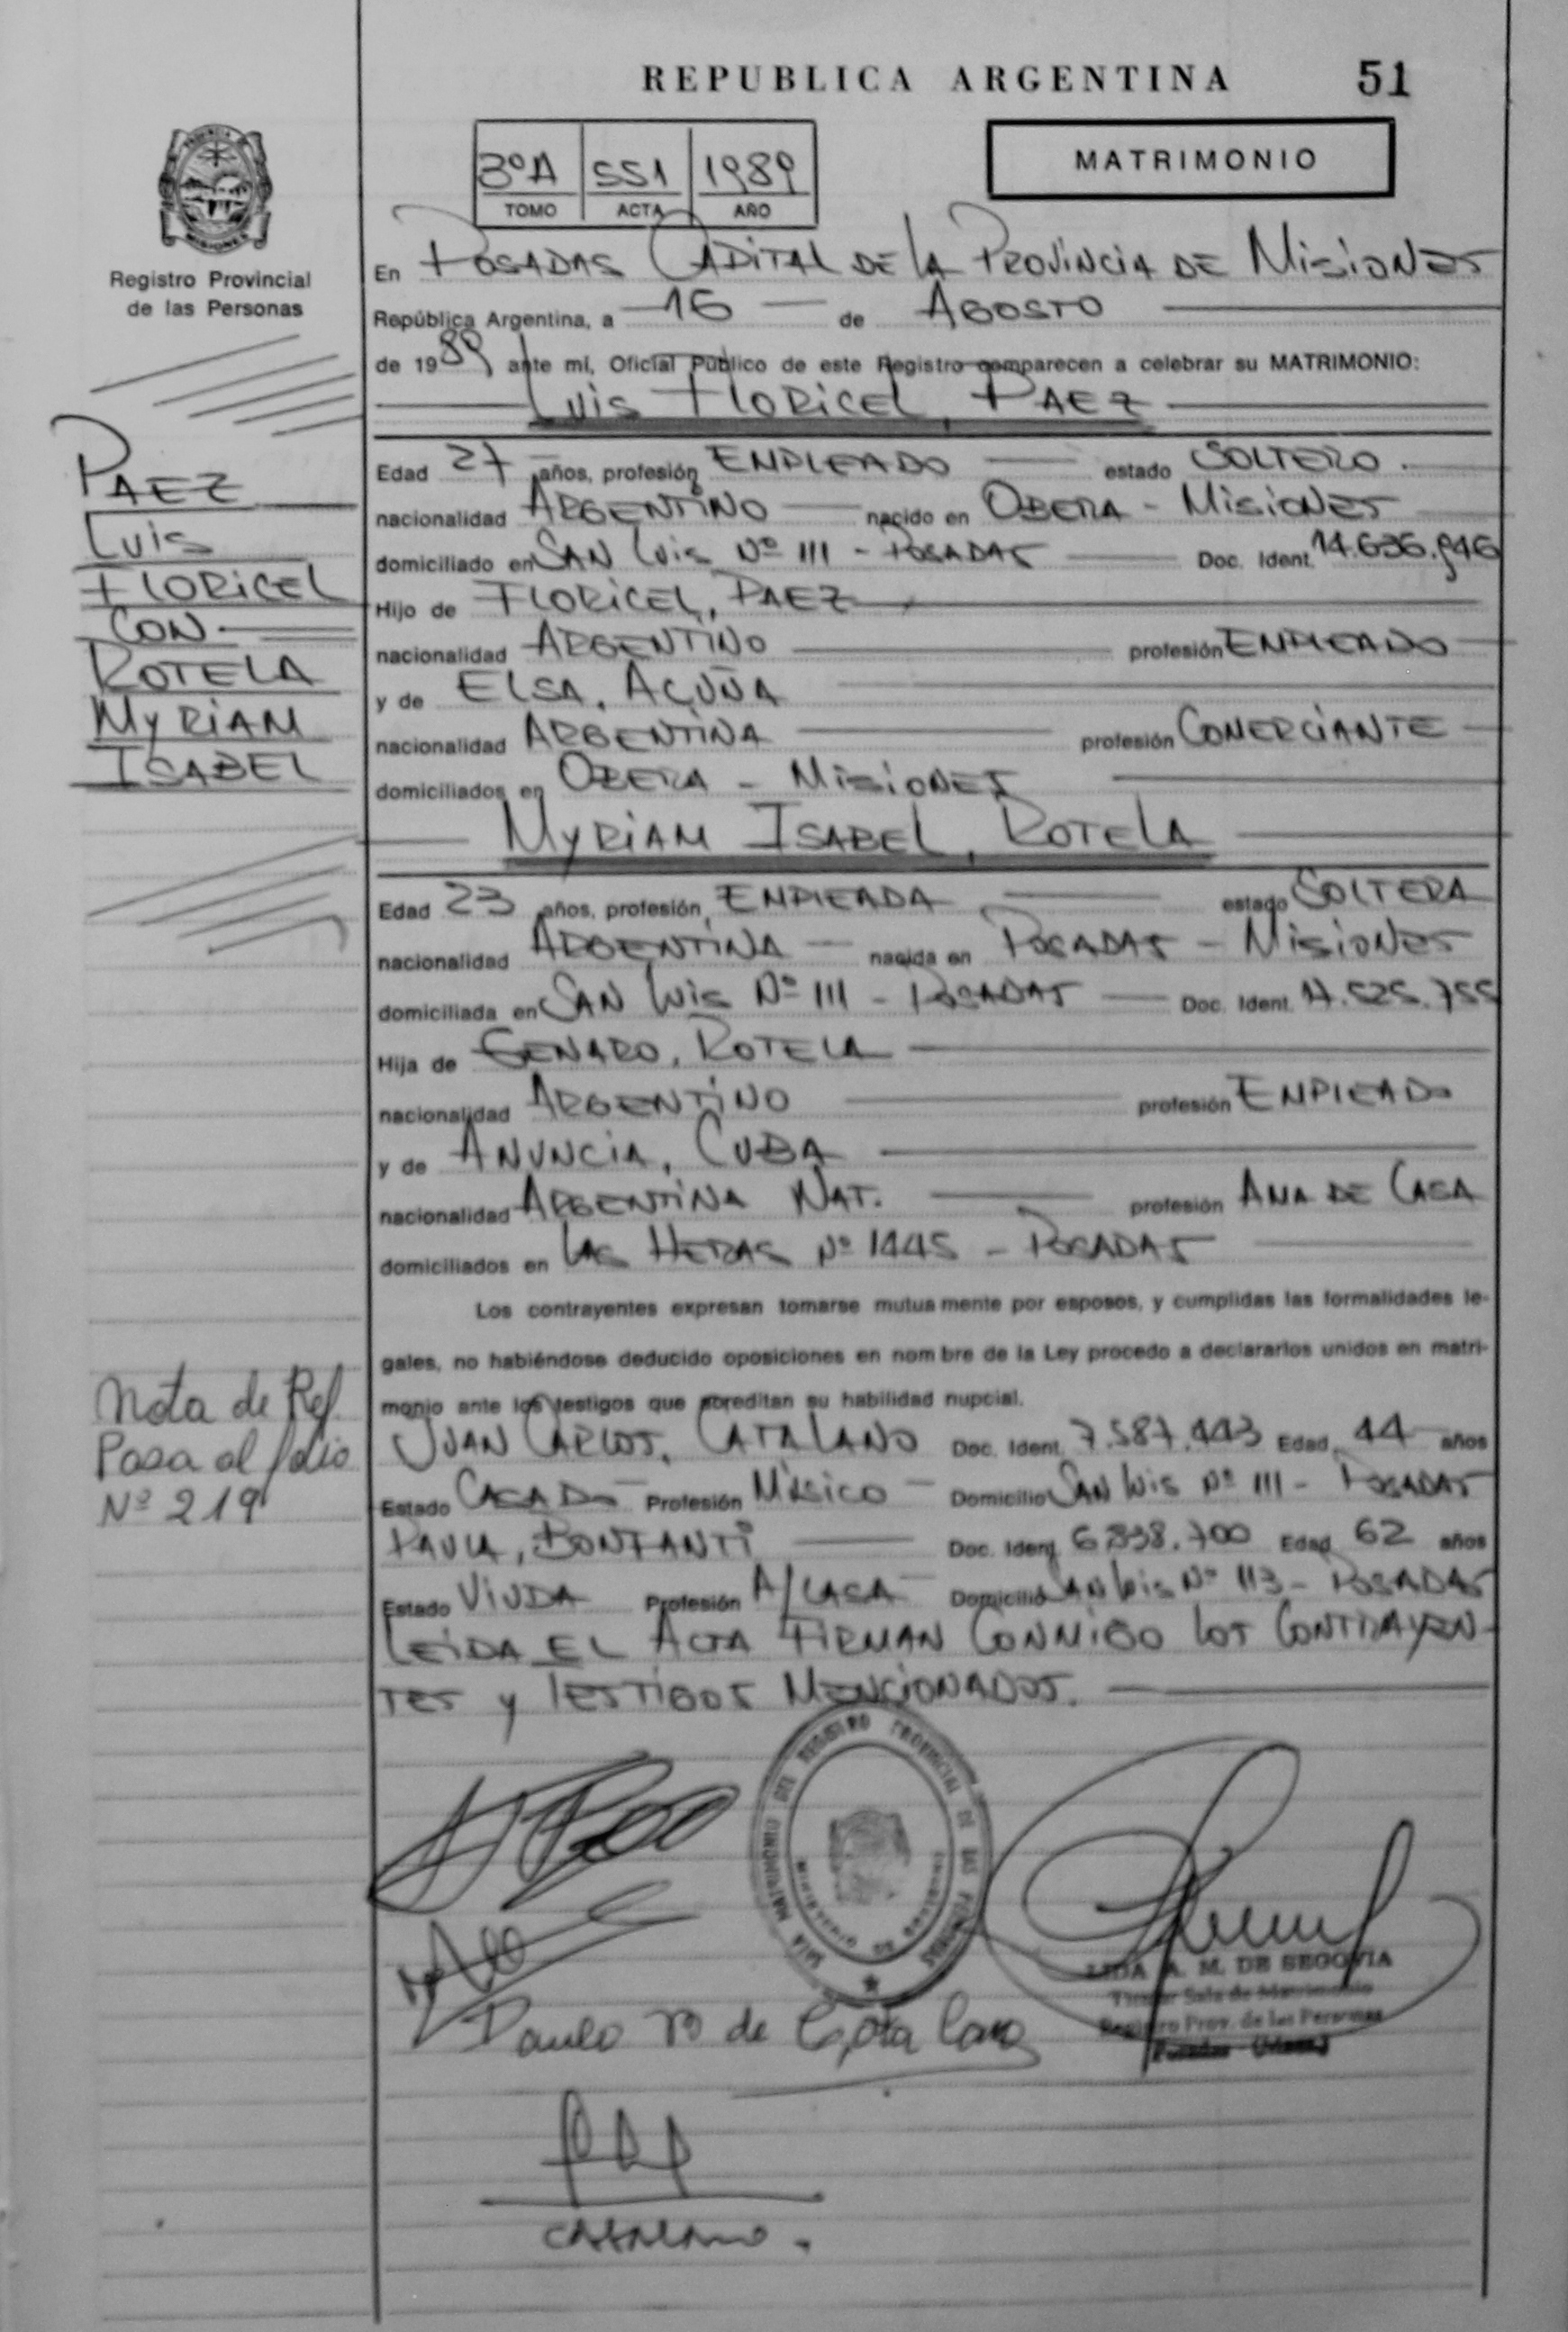 REPUBLICA ARGENTINA 51
3ºA 551 1989
TOMO ACTA AÑO
MATRIMONIO
Registro Provincial
de las Personas
En POSADAS CAPITAL DE LA PROVINCIA DE MISIONES
República Argentina, a 16 de AGOSTO
de 1989 ante mí, Oficial Público de este Registro comparecen a celebrar su MATRIMONIO:
LUIS FLORICEL, PAEZ
PAEZ
LUIS
FLORICEL
CON
ROTELA
MYRIAM
ISABEL
Edad 27 años, profesión EMPLEADO estado SOLTERO.
nacionalidad ARGENTINO nacido en OBERA - MISIONES
domiciliado en SAN LUIS Nº 111 - POSADAS Doc. Ident. 14.636.946
Hijo de FLORICEL, PAEZ
nacionalidad ARGENTINO profesión EMPLEADO
y de ELSA, ACUÑA
nacionalidad ARGENTINA profesión COMERCIANTE
domiciliados en OBERA - MISIONES
MYRIAM ISABEL, ROTELA
Edad 23 años, profesión EMPLEADA estado SOLTERA
nacionalidad ARGENTINA nacida en POSADAS - MISIONES
domiciliada en SAN LUIS Nº 111 - POSADAS Doc. Ident. 17.525.755
Hija de GENARO, ROTELA
nacionalidad ARGENTINO profesión EMPLEADO
y de ANUNCIA, CUBA
nacionalidad ARGENTINA NAT. profesión AMA DE CASA
domiciliados en LAS HERAS Nº 1445 - POSADAS
Los contrayentes expresan tomarse mutuamente por esposos, y cumplidas las formalidades le-
gales, no habiéndose deducido oposiciones en nombre de la Ley procedo a declararlos unidos en matri-
monio ante los testigos que acreditan su habilidad nupcial.
Nota de Ref.
Pasa al folio
Nº 219
JUAN CARLOS, CATALANO Doc. Ident. 7.587.443 Edad 44 años
Estado CASADO Profesión MÚSICO Domicilio SAN LUIS Nº 111 - POSADAS
PAULA, BONFANTI Doc. Ident. 6.838.700 Edad 62 años
Estado VIUDA Profesión A/CASA Domicilio SAN LUIS Nº 113 - POSADAS
LEIDA EL ACTA FIRMAN CONMIGO LOS CONTRAYEN-
TES Y TESTIGOS MENCIONADOS.
SALA MATRIMONIO DEL REGISTRO PROVINCIAL DE LAS PERSONAS
LIDA A. M. DE SEGOVIA
Titular Sala de Matrimonio
Registro Prov. de las Personas
Paula B de Catalano
CATALANO.